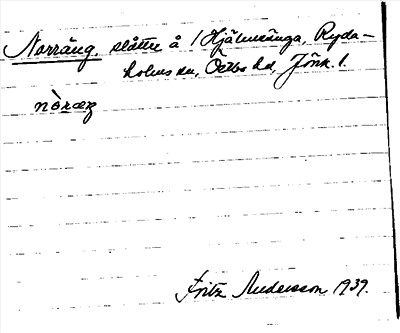 Norräng, slåtter å 1 Hjälmsänga, Ryda-
holms sn, Östbo hd, Jönk. l.
nòræŋ
Fritz Andersson 1939.